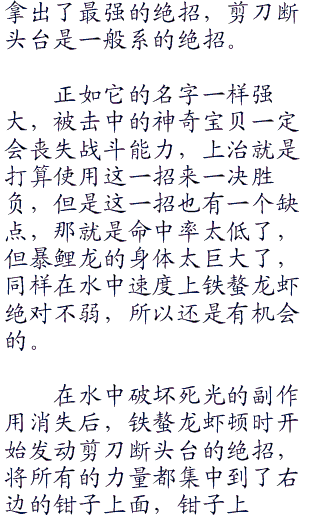 拿出了最强的绝招，剪刀断
头台是一般系的绝招。
正如它的名字一样强
大，被击中的神奇宝贝一定
会丧失战斗能力，上治就是
打算使用这一招来一决胜
负，但是这一招也有一个缺
点，那就是命中率太低了，
但暴鲤龙的身体太巨大了，
同样在水中速度上铁螯龙虾
绝对不弱，所以还是有机会
的。
在水中破坏死光的副作
用消失后，铁螯龙虾顿时开
始发动剪刀断头台的绝招，
将所有的力量都集中到了右
边的钳子上面，钳子上